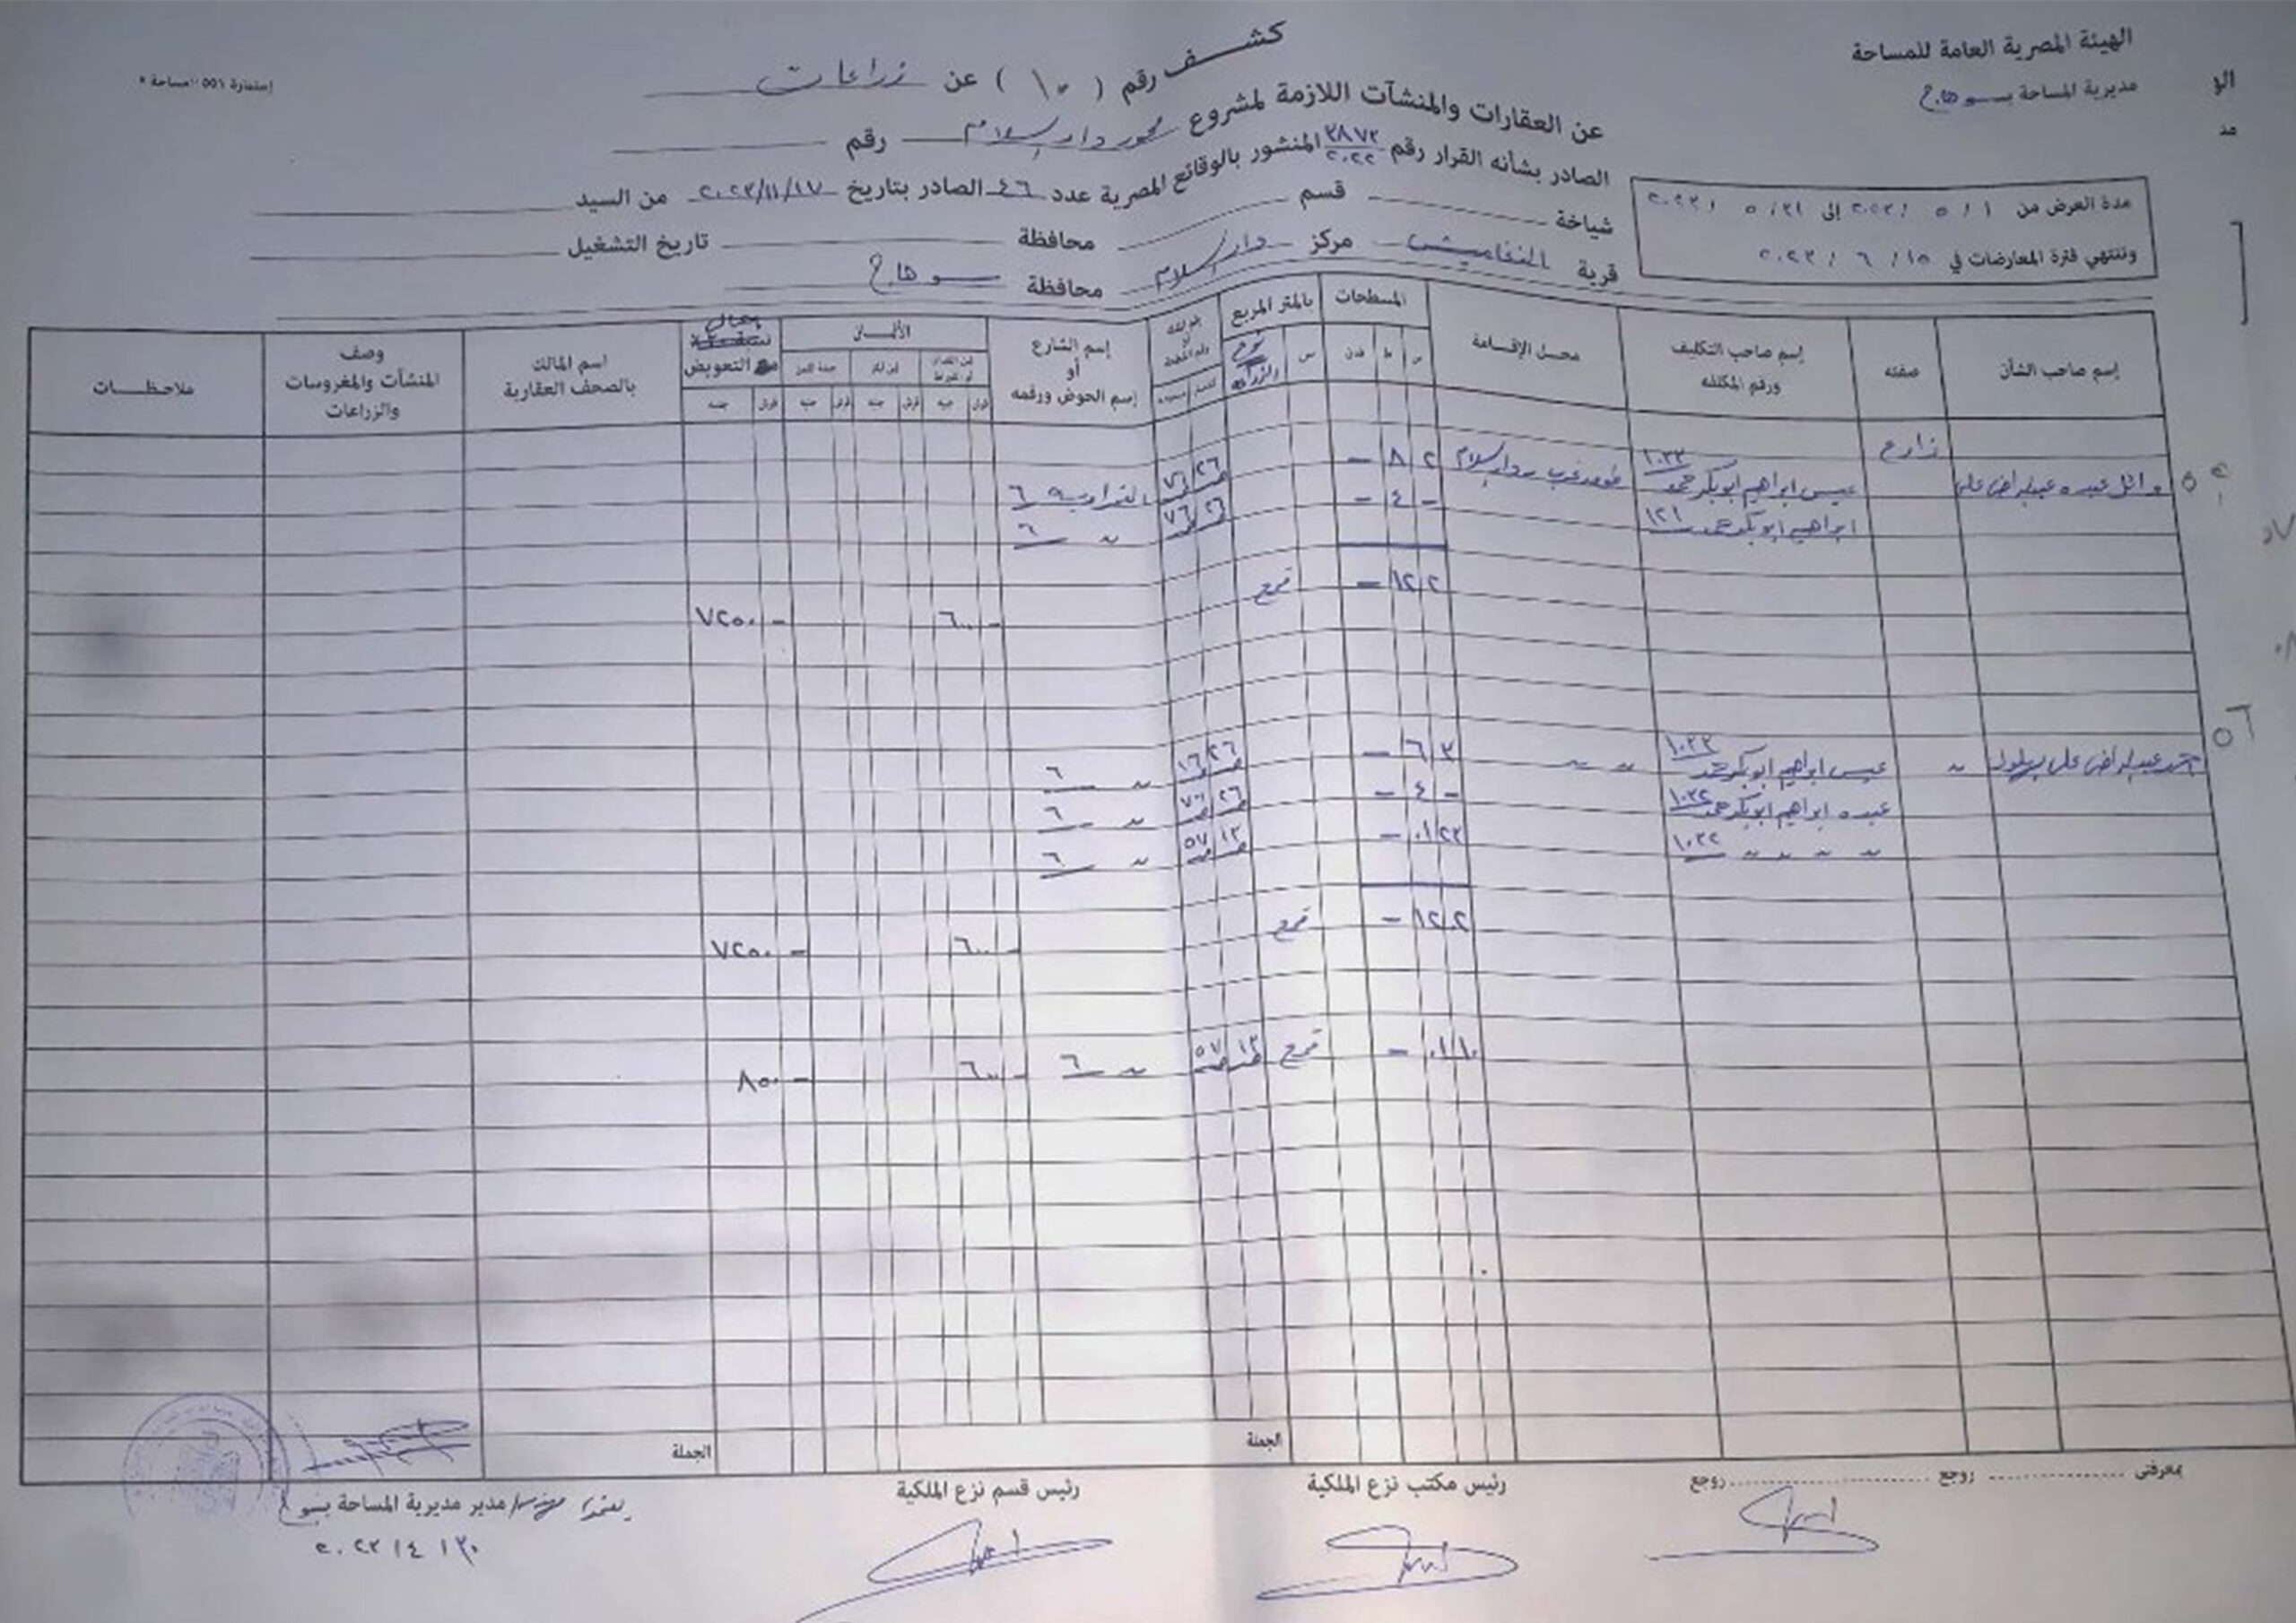 الهيئة المصرية العامة للمساحة
مديرية المساحة بسوهاج
إستمارة ٥٥١ مساحة
كشف رقم ( ١٠ ) عن زراعات
عن العقارات والمنشآت اللازمة لمشروع محور دار السلام رقم
الصادر بشأنه القرار رقم ٣٨٧٢ / ٢٠٢٢ المنشور بالوقائع المصرية عدد ٤٦ الصادر بتاريخ ٢٠٢٢/١١/١٧ من السيد
شياخة قسم محافظة تاريخ التشغيل
قرية النغاميش مركز دار السلام محافظة سوهاج
مدة العرض من ١ / ٥ / ٢٠٢٣ إلى ٣١ / ٥ / ٢٠٢٣
وتنتهي فترة المعارضات في ١٥ / ٦ / ٢٠٢٣
إسم صاحب الشأن
صفته
إسم صاحب التكليف ورقم المكلفه
محل الإقامة
المسطحات
س ط فدن
بالمتر المربع
س نوع الزراعه
إسم الشارع أو إسم الحوض ورقمه
الأثمان
قرش جنيه قرش جنيه قرش جنيه
التعويض
قرش جنيه
اسم المالك بالصحف العقارية
وصف المنشآت والمغروسات والزراعات
ملاحظات
وائل عبده عبدالراضى على زارع عيسى ابراهيم ابوبكر محمد ١٠٣٣ ٢ ٨ – ٢٦ ٧٦ ٦
ابراهيم ابوبكر محمد ١٢١ – ٤ – ٢٦ ٧٦ 〃 ٦
٢ ١٢ – قمح
– ٦٠٠ – ٧٢٥٠
٥٦ عبدالراضى على بهلول 〃 عيسى ابراهيم ابوبكر محمد ١٠٣٣ 〃 〃 ٣ ٦ – ٢٦ ٧٦ 〃 ٦
عبده ابراهيم ابوبكر محمد ١٠٣٢ – ٤ – ٢٦ ٧٦ 〃 ٦
〃 〃 〃 〃 ١٠٣٢ ٢٣ ٠١ – ١٣ ٥٧ 〃 ٦
٢ ١٢ – قمح
– ٦٠٠ – ٧٢٥٠
١٠ ٠١ – قمح ١٣ ٥٧ 〃 ٦ – ٦٠٠ – ٨٥٠
الجملة الجملة
بمعرفتى روجع روجع
رئيس مكتب نزع الملكية
رئيس قسم نزع الملكية
يعتمد مدير مديرية المساحة بسوهاج
٢٠٢٣/٤/٣٠